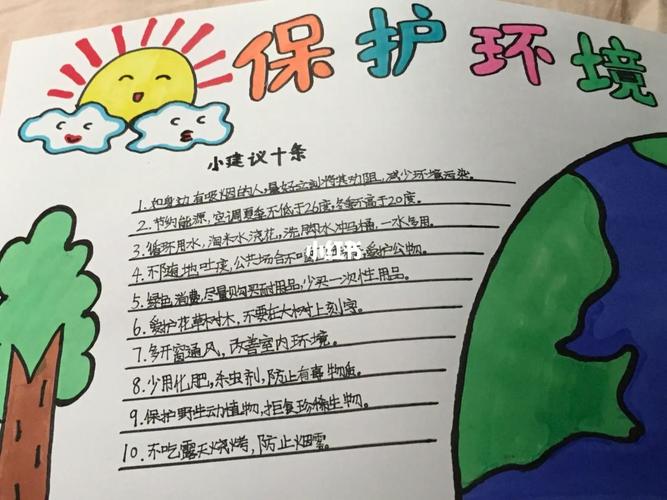 保护环境
小建议十条
1. 如身边有吸烟的人,最好立刻将其劝阻,减少环境污染。
2. 节约能源,空调夏季不低于26度,冬季不高于20度。
3. 循环用水,淘米水浇花,洗脚水冲马桶,一水多用。
4. 不随地吐痰,公共场合不吸 爱护公物。
小红书
5. 绿色消费,尽量购买耐用品,少买一次性用品。
6. 爱护花草树木,不要在大树上刻字。
7. 多开窗通风,改善室内环境。
8. 少用化肥,杀虫剂,防止有毒物质。
9. 保护野生动植物,拒食珍稀生物。
10. 不吃露天烧烤,防止烟雾。